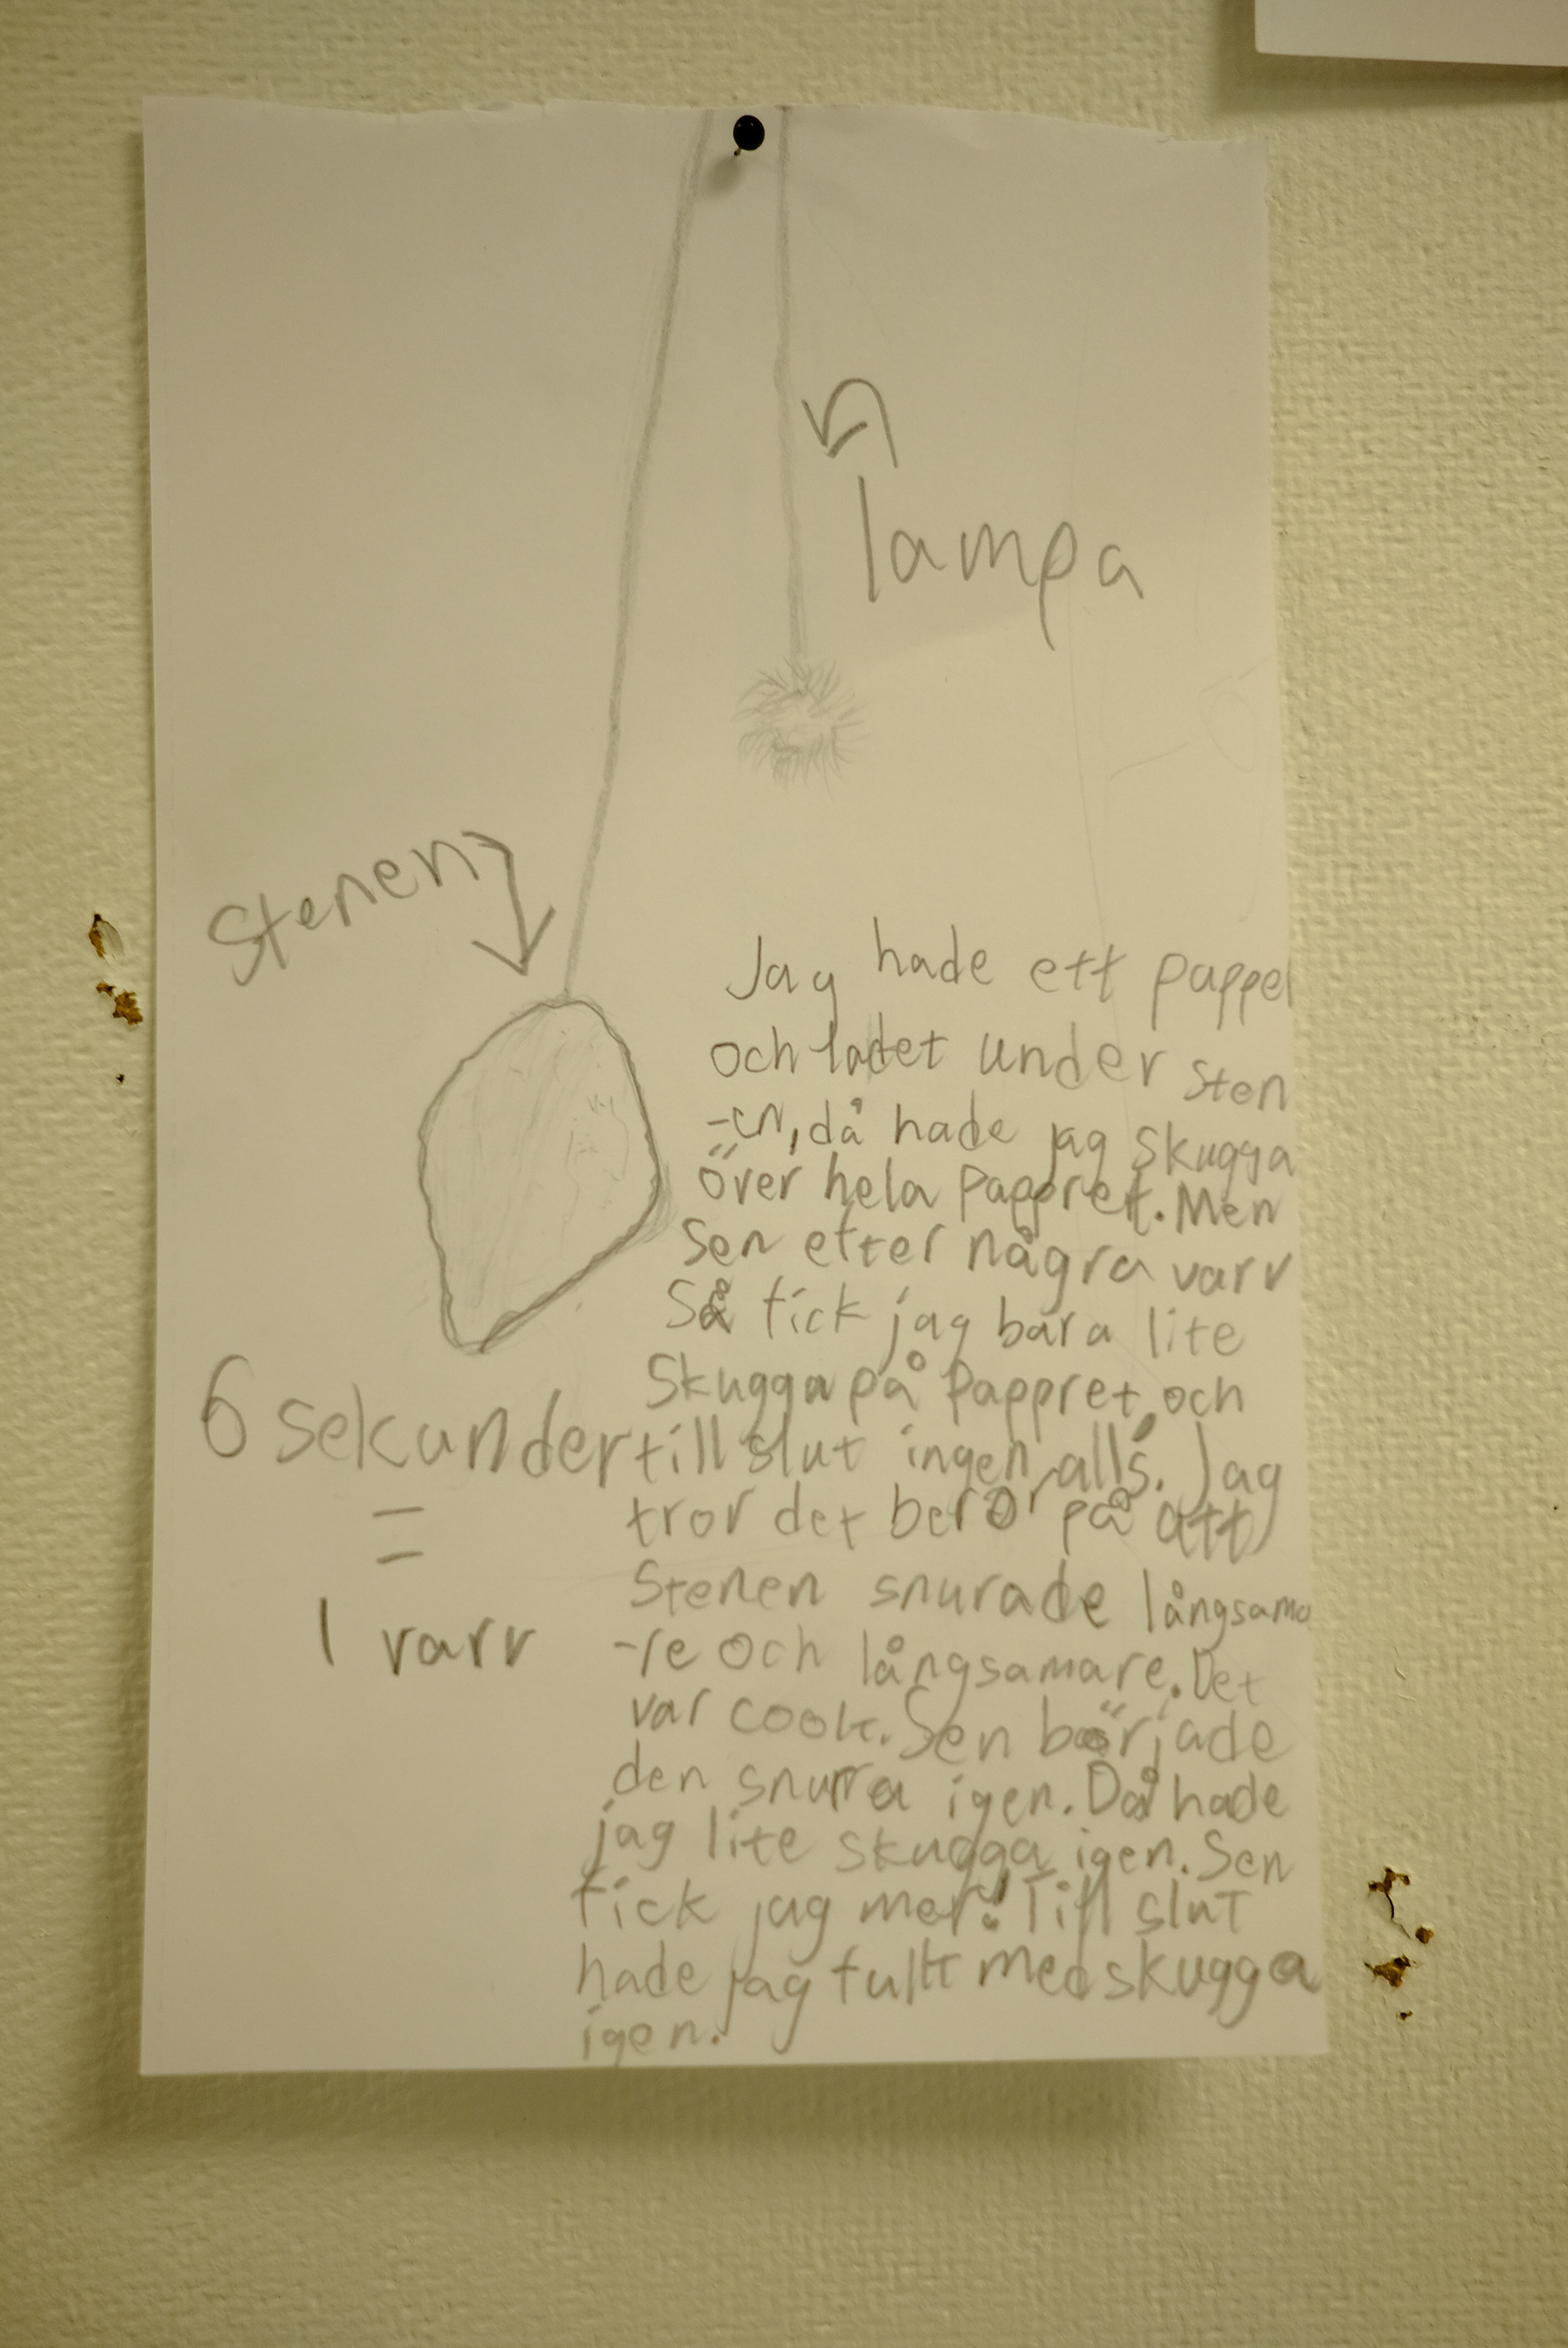 lampa
Stenen
Jag hade ett papper
och ladet under sten
-en, då hade jag skugga
över hela pappret. Men
Sen efter några varv
Så fick jag bara lite
Skugga på pappret, och
till slut ingen alls. Jag
tror det beror på att
Stenen snurade långsama
-re och långsamare. Det
var coolt. Sen började
den snurra igen. Då hade
jag lite skugga igen. Sen
fick jag mer! Till slut
hade jag fullt med skugga
igen.
6 sekunder
=
1 varv